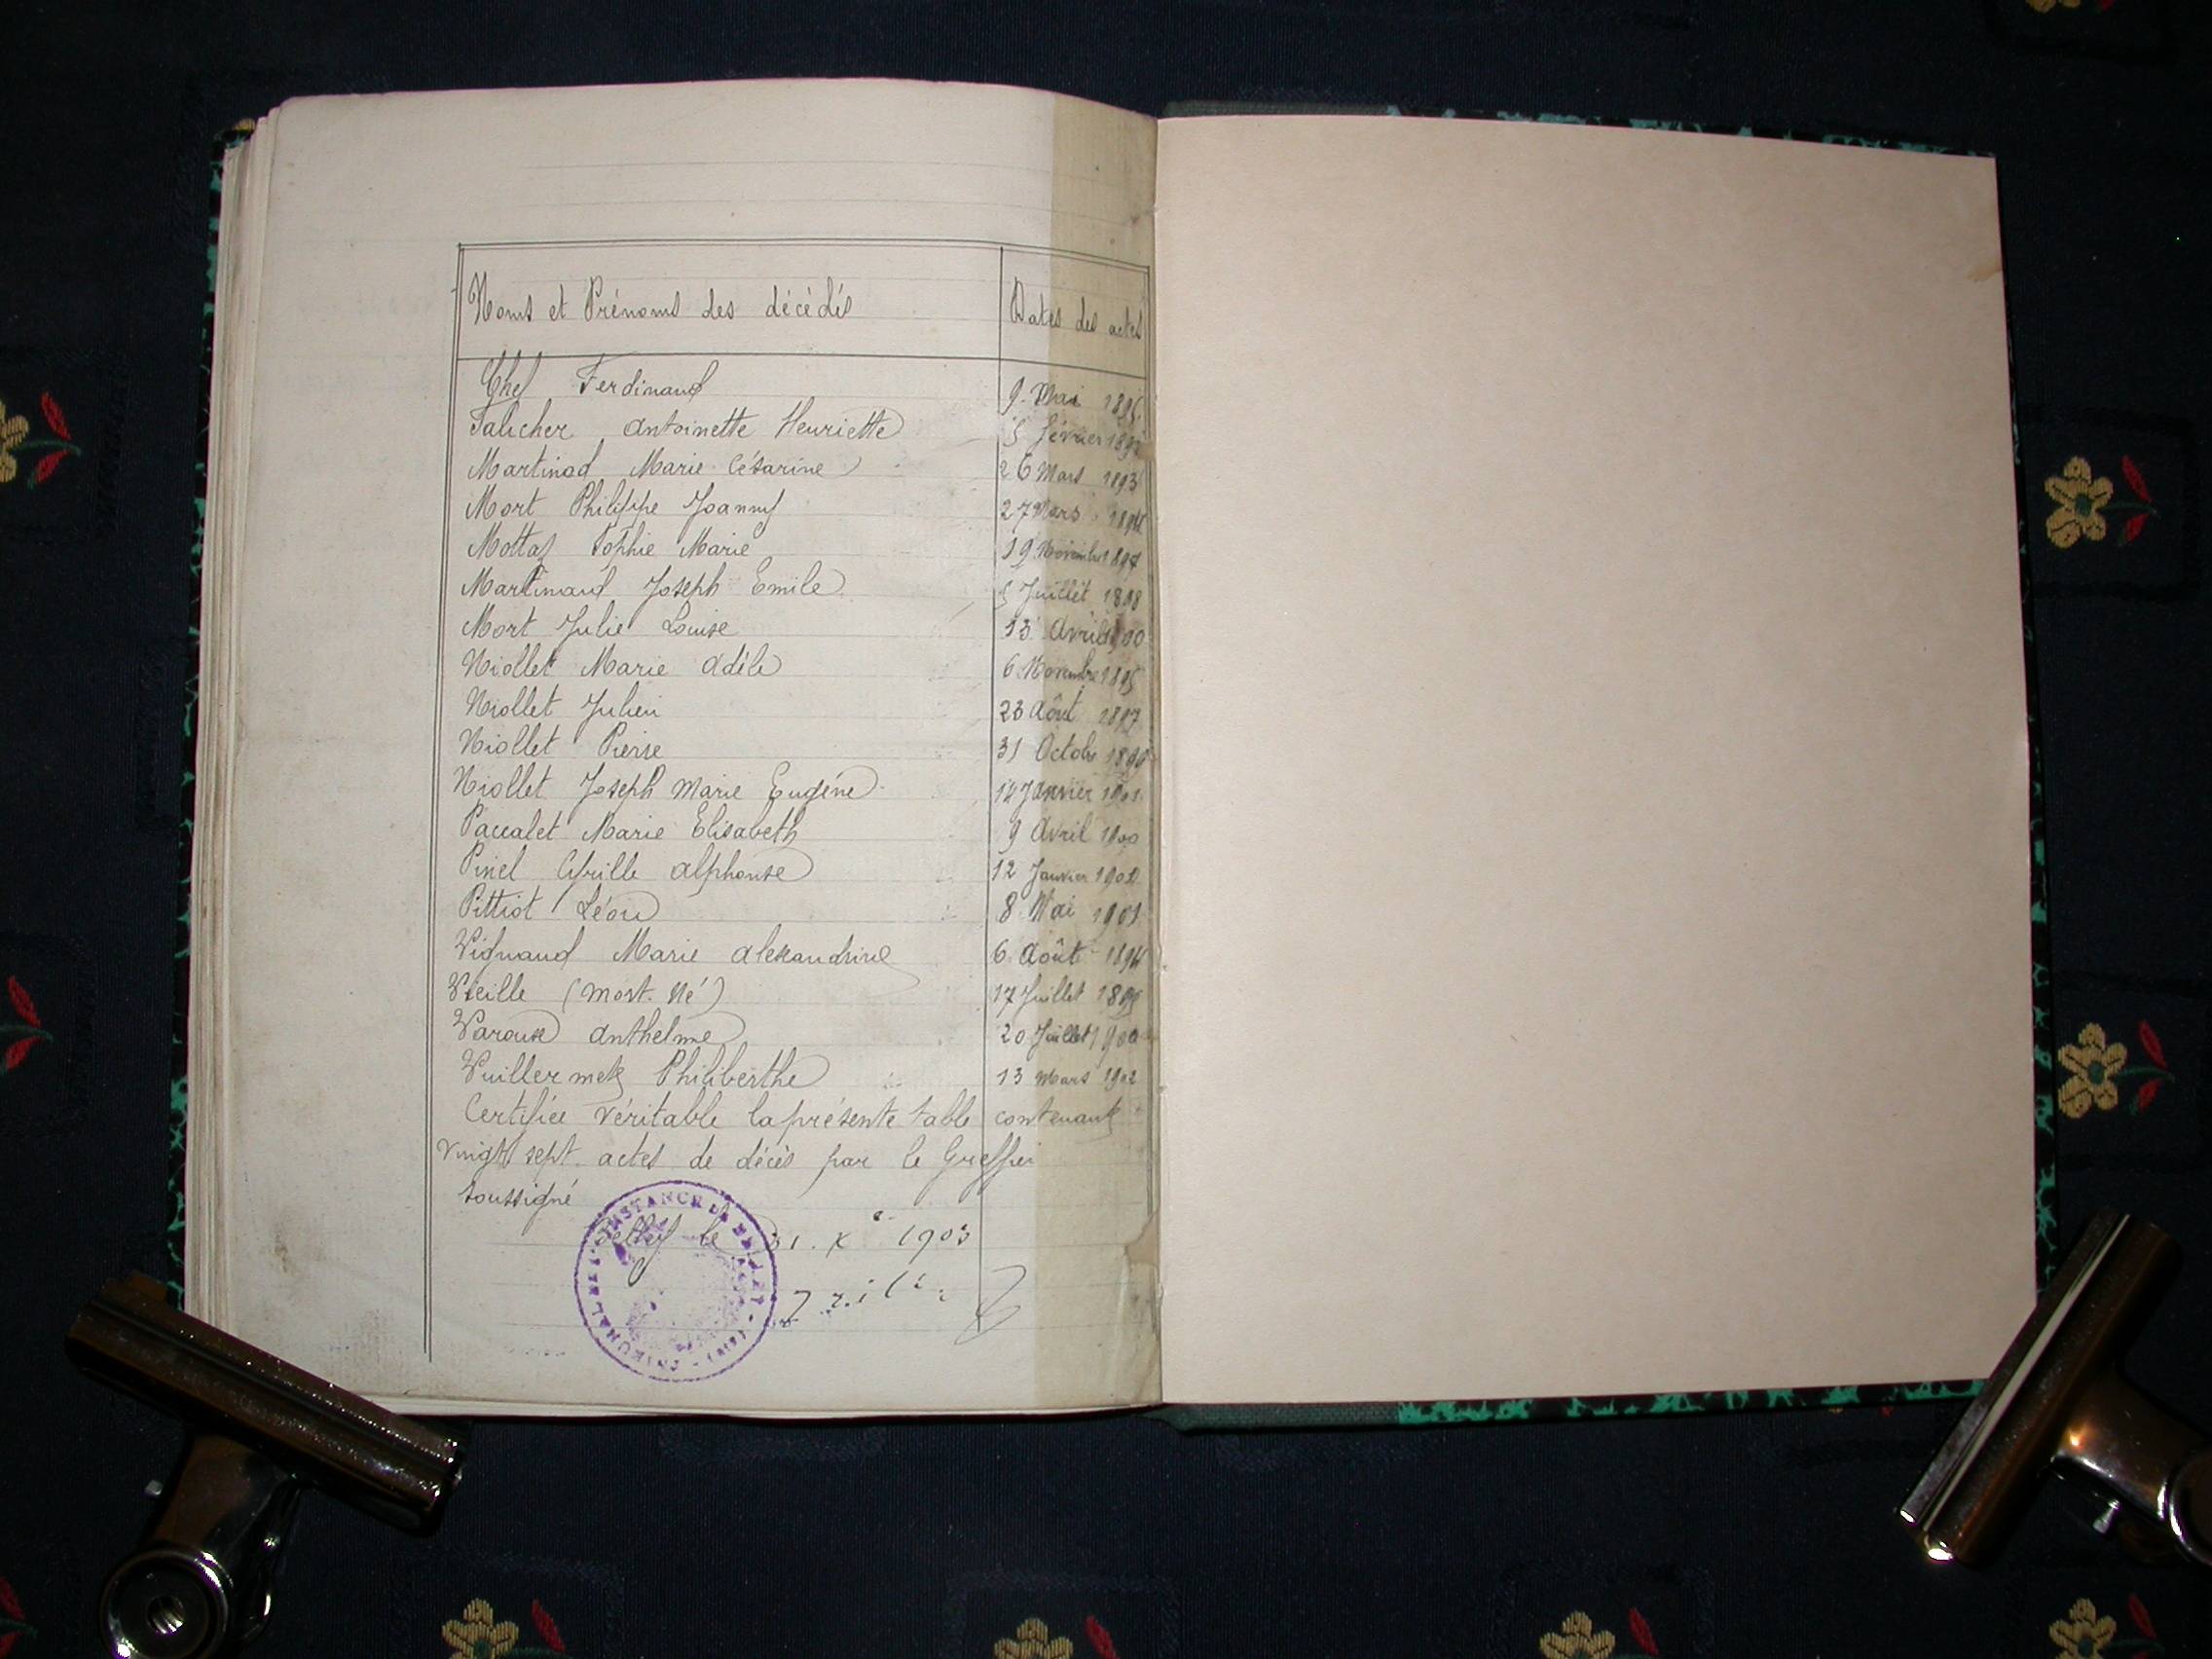 Noms et Prénoms des décédés Dates des actes
Ferdinand 9 Mai 1895
Antoinette Henriette 5 février
Martinod Marie Césarine 26 Mars 1893
Mort Philippe Joanny 27 Mars 1894
Mottaz Sophie Marie 19 Novembre 1897
Martinand Joseph Emile 5 Juillet 1898
Mort Julie Louise 13 Avril 1900
Niollet Marie Adèle 6 Novembre 1895
Niollet Julien 23 Aôut 1897
Niollet Pierre 31 Octobre
Niollet Joseph Marie Eugène Janvier 1901
Paccalet Marie Elisabeth 9 Avril 1900
Pinel Cyrille Alphonse 12 Janvier
Pittiot Léon 8 Mai 1901
Vignaud Marie Alexandrine 6 Août 1894
Vieille (Mort. Né) 17 Juillet 1895
Anthelme 20 Juillet 1900
Vuillermet Philiberthe 13 Mars 1902
Certifiée véritable la présente table contenant
vingt sept actes de décès par le Greffier
soussigné
Belley le 31. Xe 1903
TRIBUNAL DE 1e INSTANCE DE BELLEY (AIN)